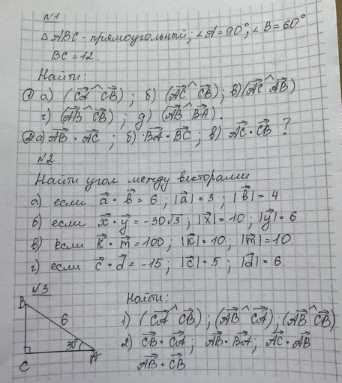 №1
△ABC - прямоугольный; ∠A = 90°, ∠B = 60°
BC = 12.
Найти:
① а) (CA^CB); б) (AC^CB); в) (AC^AB)
г) (AB^CB); д) (AB^BA).
② а) AB · AC; б) BA · BC; в) AC · CB ?
№2
Найти угол между векторами
а) если a · b = 6, |a| = 3, |b| = 4
б) если x · y = -30√3; |x| = 10, |y| = 6
в) если k · m = 100, |k| = 10, |m| = 10
г) если c · d = -15; |c| = 5, |d| = 6.
№3
Найти:
1) (CA^CB), (AB^CA), (AB^CB)
2) CB · CA; AB · BA; AC · AB
AB · CB
B
6
30°
C
A